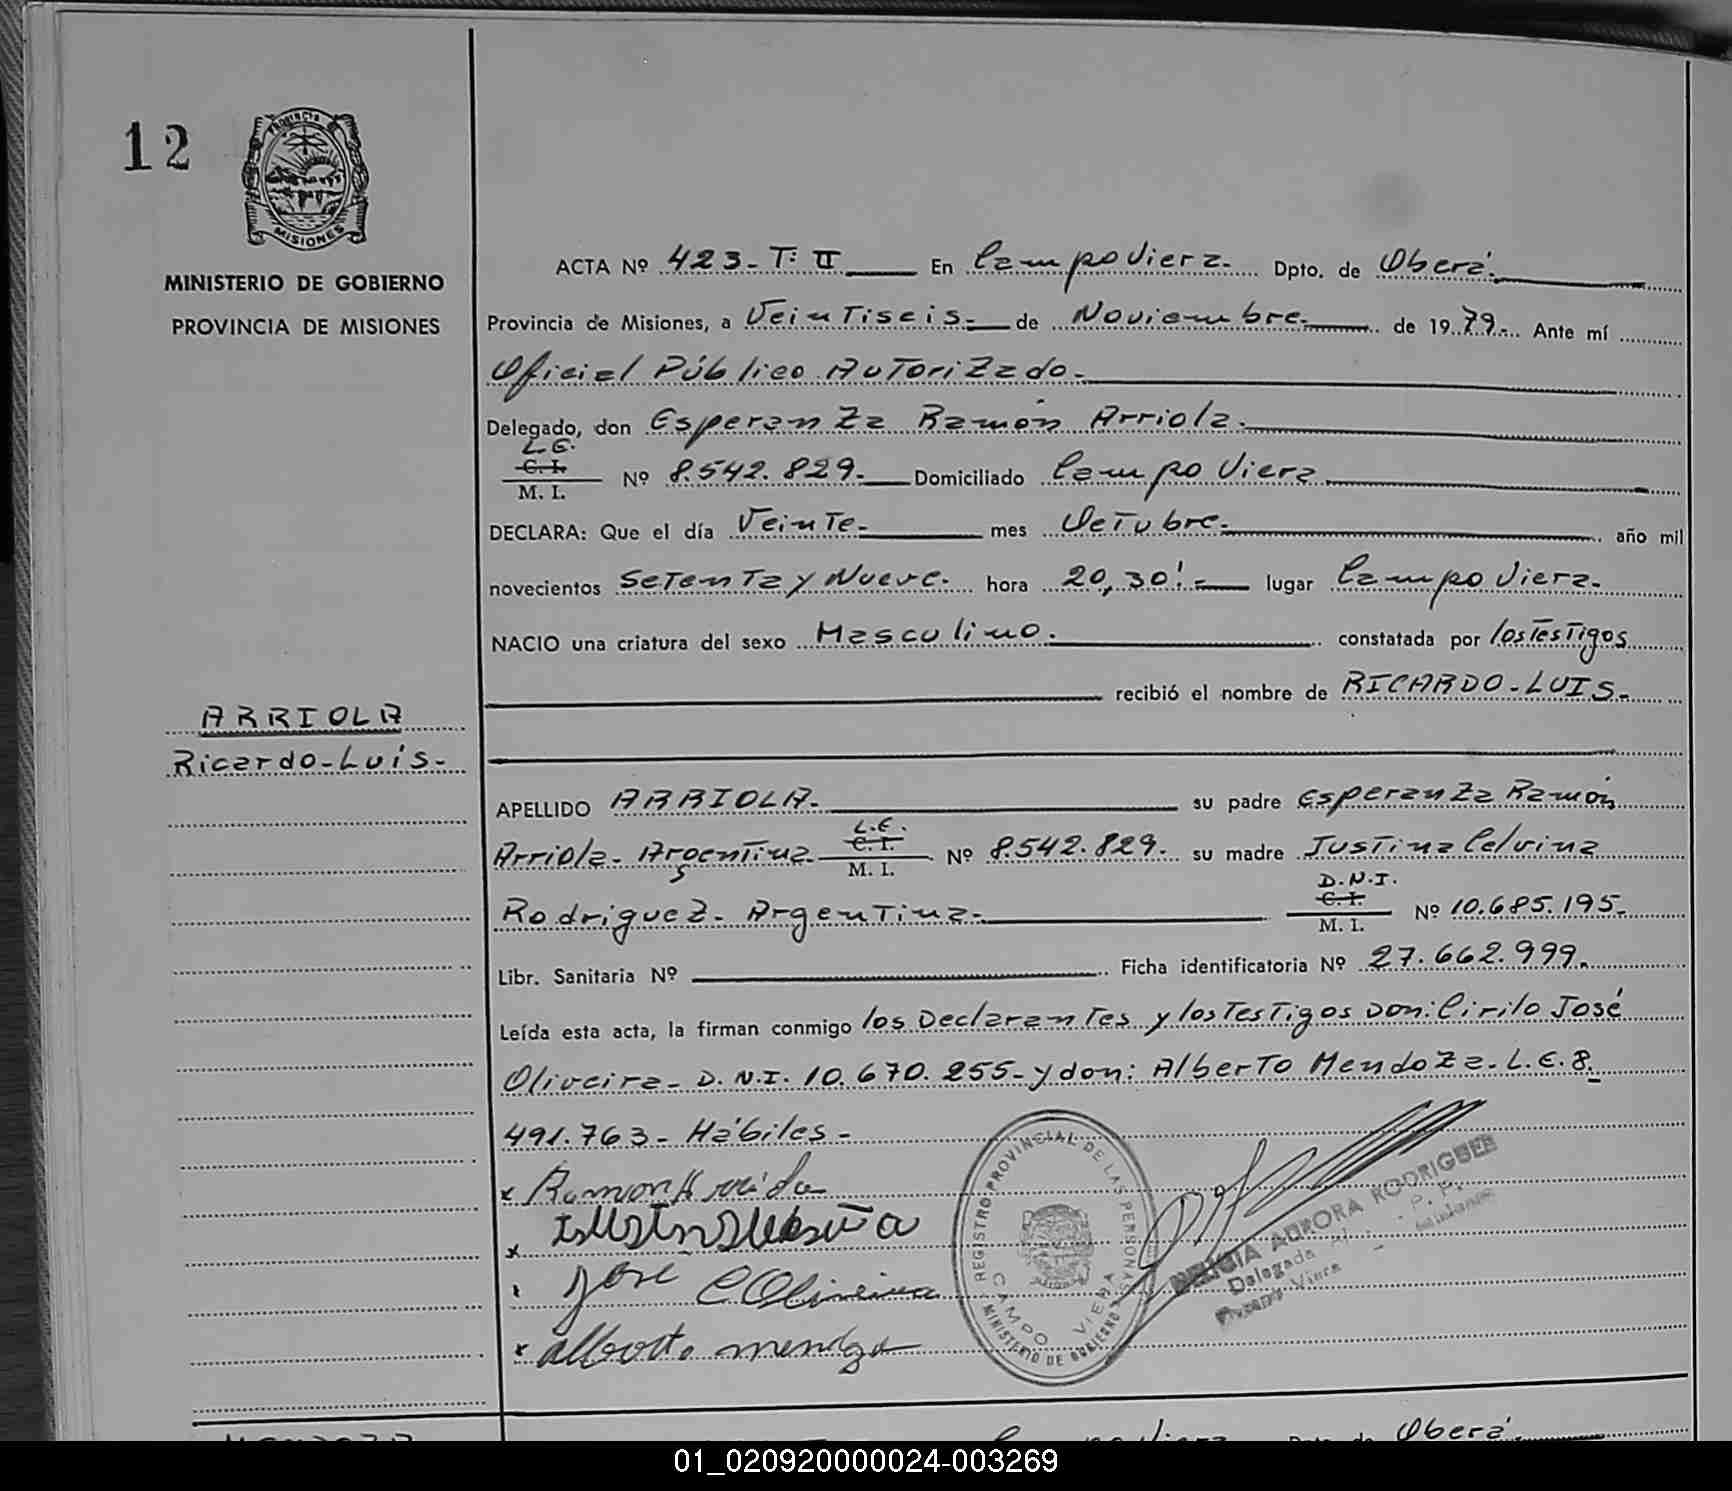 12
PROVINCIA
MISIONES
MINISTERIO DE GOBIERNO
PROVINCIA DE MISIONES
ACTA Nº 423-T: II En Campo Viera. Dpto. de Oberá.
Provincia de Misiones, a Veintiseis. de Noviembre. de 1979. Ante mí
Oficial Público Autorizado.
Delegado, don Esperanza Ramón Arriola.
L.E.
C. I.
M. I.
Nº 8.542.829. Domiciliado Campo Viera
DECLARA: Que el día Veinte. mes Octubre. año mil
novecientos Setenta y Nueve. hora 20,30'. lugar Campo Viera.
NACIO una criatura del sexo Masculino. constatada por los Testigos
recibió el nombre de RICARDO-LUIS.
ARRIOLA
Ricardo-Luis.
APELLIDO ARRIOLA. su padre Esperanza Ramón
Arriola- Argentina. L.E. C. I. M. I. Nº 8.542.829. su madre Justina Celvina
Rodriguez- Argentina. D.N.I. C. I. M. I. Nº 10.685.195.
Libr. Sanitaria Nº Ficha identificatoria Nº 27.662.999.
Leída esta acta, la firman conmigo los Declarantes y los Testigos Don: Cirilo José
Oliveira- D.N.I. 10.670.255- y don: Alberto Mendoza. L.E. 8.
491.763- Hábiles-
x Ramon Arriola
x
José C Oliveira
x alberto mendoza
REGISTRO PROVINCIAL DE LAS PERSONAS
CAMPO VIERA
MINISTERIO DE GOBIERNO
AURORA RODRIGUEZ
Delegada
Campo Viera
Campo Viera Dpto. de Oberá.
01_020920000024-003269